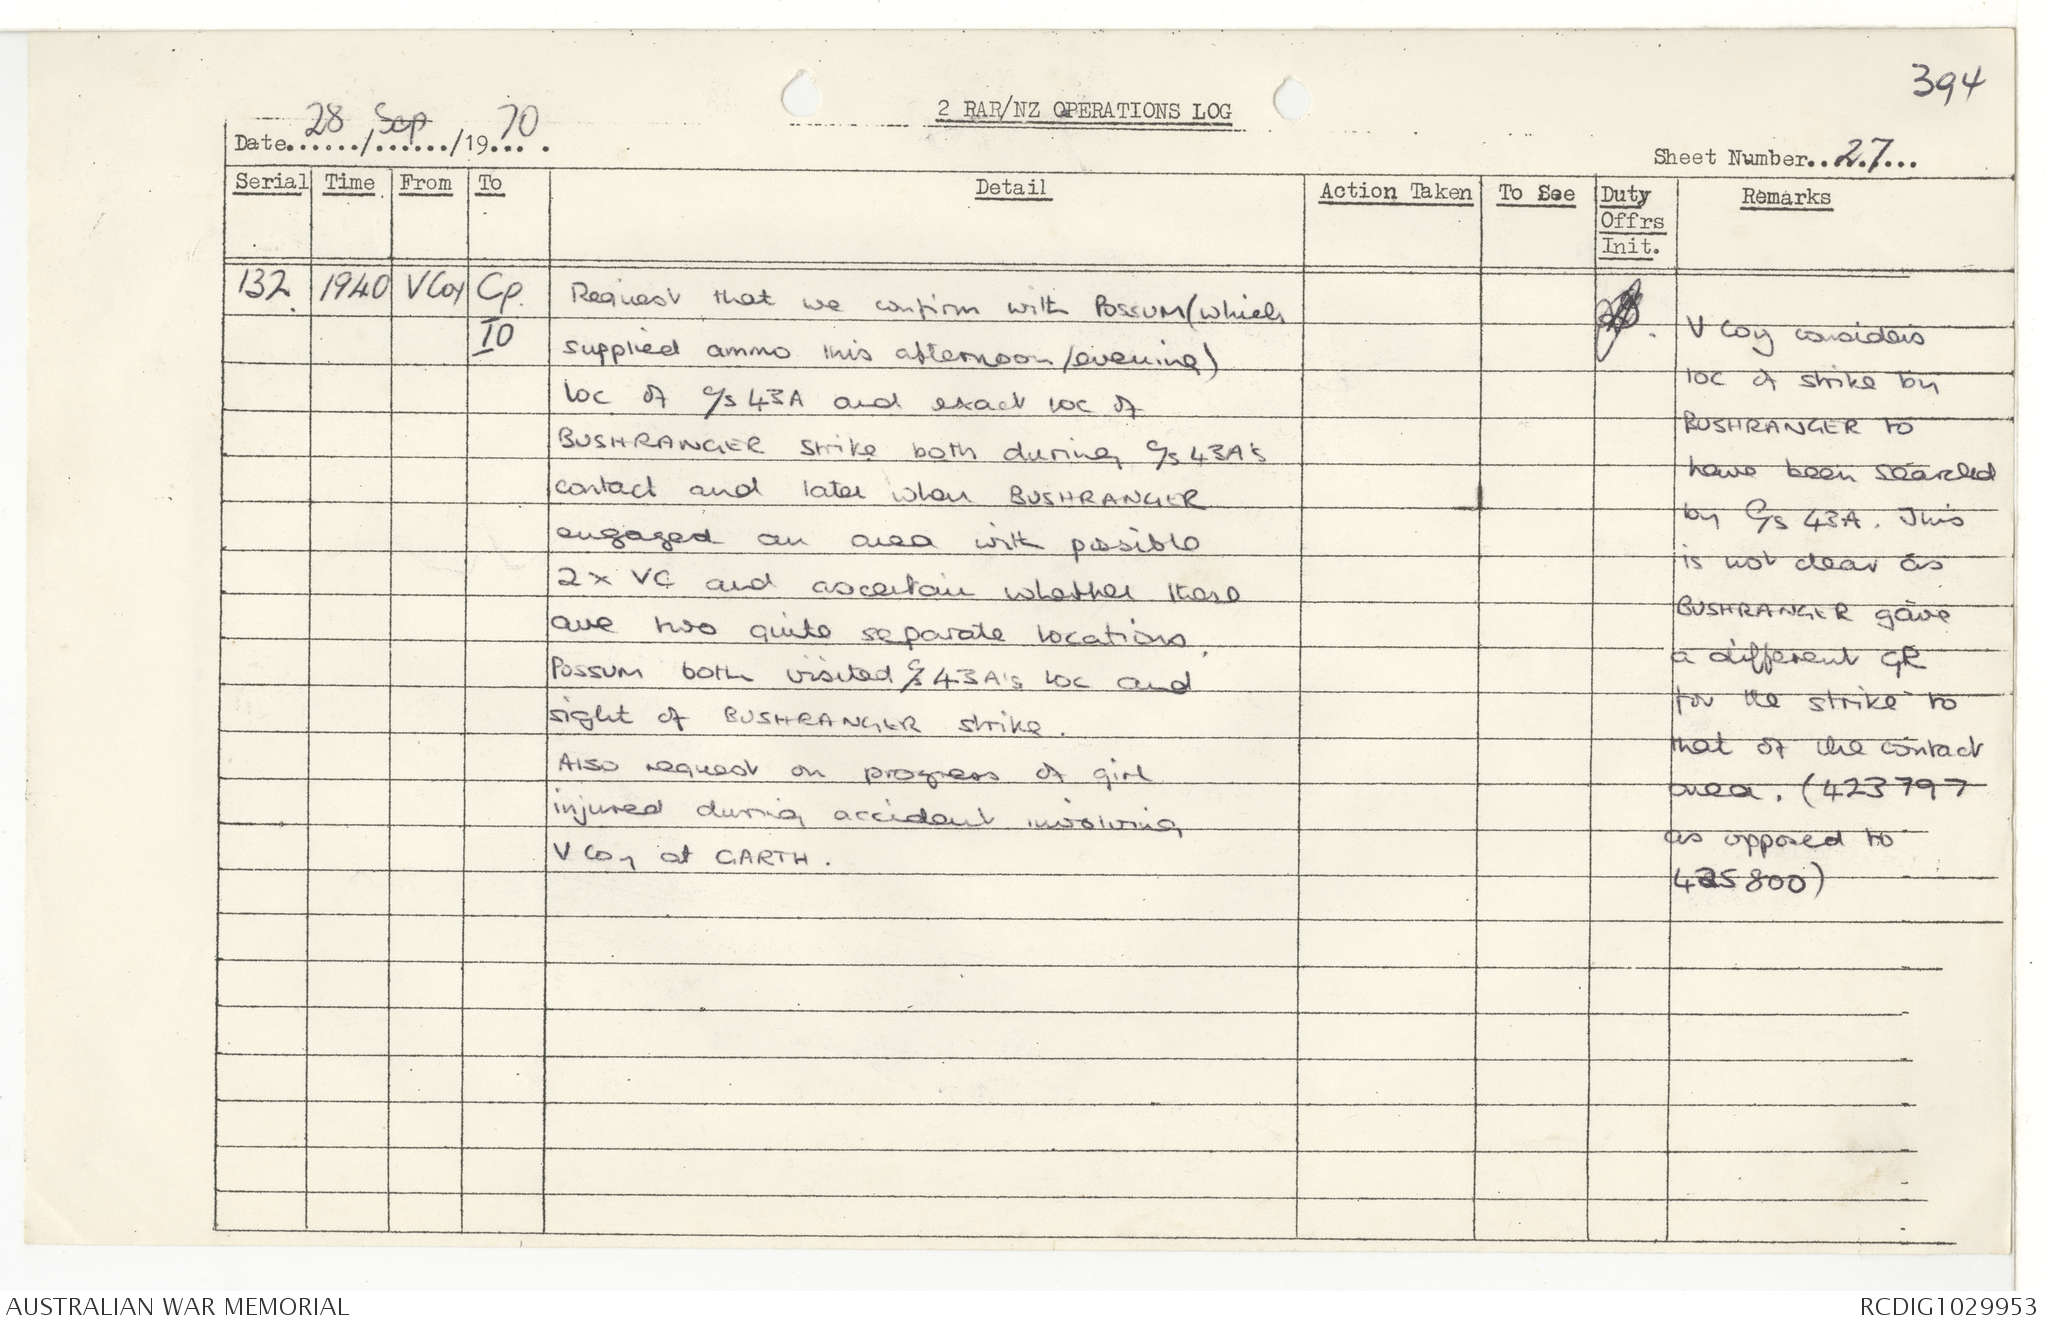 394
2 RAR/NZ OPERATIONS LOG
Date 28 / Sep / 19 70
Sheet Number 27
Serial Time From To Detail Action Taken To See Duty Offrs Init. Remarks
132. 1940 V Coy Cp. IO
Request that we confirm with POSSUM (which
supplied ammo this afternoon/evening)
loc of C/s 43A and exact loc of
BUSHRANGER strike both during C/s 43A's
contact and later when BUSHRANGER
engaged an area with possible
2 x VC and ascertain whether these
are two quite separate locations.
Possum both visited C/s 43A's loc and
sight of BUSHRANGER strike.
Also request on progress of girl
injured during accident involving
V Coy at GARTH.
V Coy considers
loc of strike by
BUSHRANGER to
have been searched
by C/s 43A. This
is not clear as
BUSHRANGER gave
a different GR
for the strike to
that of the contact
area. (423797
as opposed to
425800)
AUSTRALIAN WAR MEMORIAL
RCDIG1029953